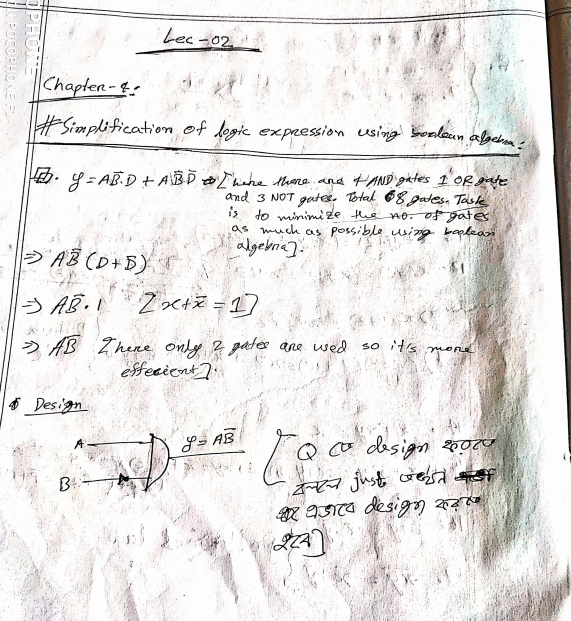 Lec-02
Chapter-4:
# Simplification of logic expression using boolean algebra:
y = AB̅.D + AB̅D̅ ⇒ [here there are 4 AND gates 1 OR gate
and 3 NOT gates. Total 8 gates. Task
is to minimize the no. of gates
as much as possible using boolean
algebra].
⇒ AB̅(D+D̅)
⇒ AB̅.1 [x+x̅ = 1]
⇒ AB̅ [here only 2 gates are used so it's more
effecient].
Design
A
y = AB̅
B
[Q তে design করতে
বললে just
এভাবে design করতে
হবে]